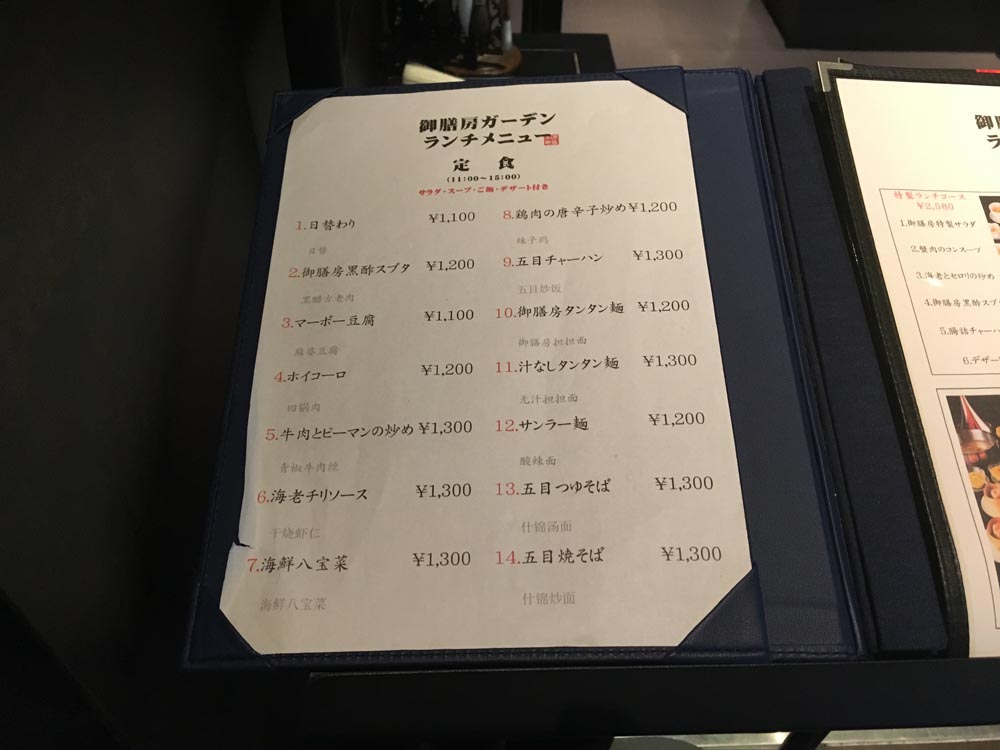 御膳房ガーデン
ランチメニュー
定 食
(11:00~15:00)
サラダ・スープ・ご飯・デザート付き
1.日替わり ¥1,100
日替
2.御膳房黒酢スブタ ¥1,200
黑醋古老肉
3.マーボー豆腐 ¥1,100
麻婆豆腐
4.ホイコーロ ¥1,200
回锅肉
5.牛肉とピーマンの炒め ¥1,300
青椒牛肉丝
6.海老チリソース ¥1,300
干烧虾仁
7.海鮮八宝菜 ¥1,300
海鲜八宝菜
8.鶏肉の唐辛子炒め ¥1,200
辣子鸡
9.五目チャーハン ¥1,300
五目炒饭
10.御膳房タンタン麺 ¥1,200
御膳房担担面
11.汁なしタンタン麺 ¥1,300
无汁担担面
12.サンラー麺 ¥1,200
酸辣面
13.五目つゆそば ¥1,300
什锦汤面
14.五目焼そば ¥1,300
什锦炒面
特製ランチコース
¥2,580
1.御膳房特製サラダ
2.蟹肉のコンスープ
3.海老とセロリの炒め
4.御膳房黒酢スブ
5.腸詰チャーハ
6.デザー